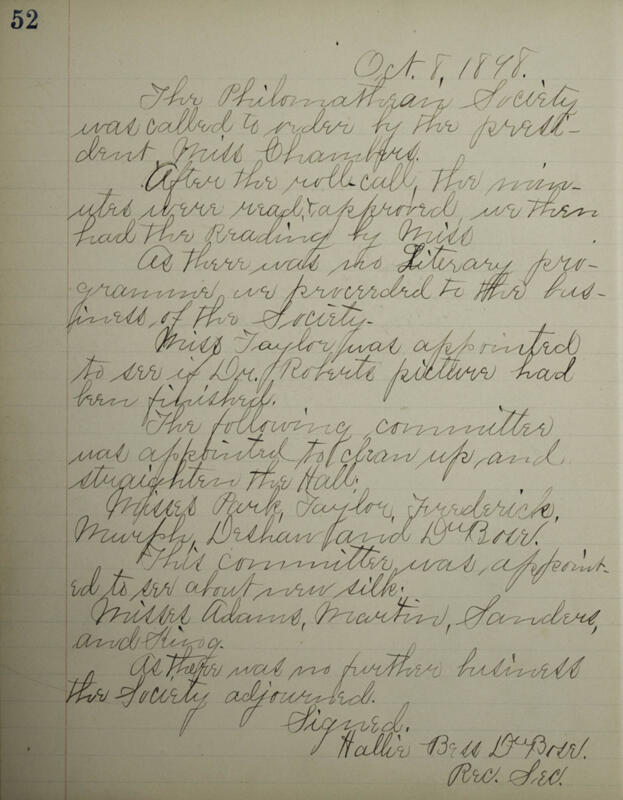 52
Oct. 8, 1898.
The Philomathean Society
was called to order by the presi-
dent, Miss Chambers.
After the roll-call, the min-
utes were read & approved, we then
had the Reading by Miss
As there was no Literary pro-
gramme we proceeded to the bus-
iness of the Society.
Miss Taylor was appointed
to see if Dr. Roberts picture had
been finished.
The following committee
was appointed to clean up and
straighten the Hall.
Misses Park, Taylor, Frederick,
Murph, Deshaw and DuBose.
This committee was appoint-
ed to see about new silk.
Misses Adams, Martin, Sanders,
and King.
As there was no further business
the Society adjourned.
Signed.
Hallie Bess DuBose.
Rec. Sec.